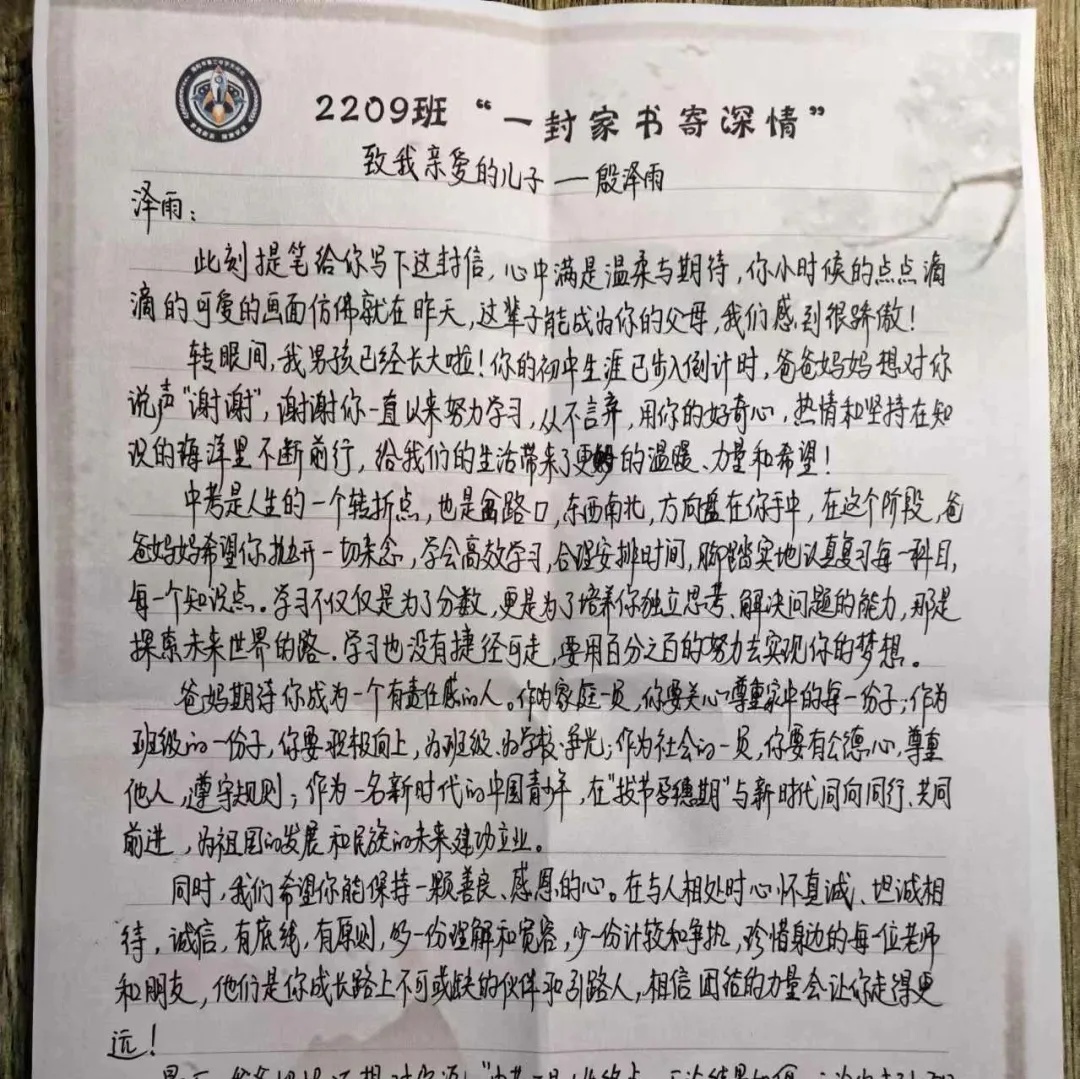 2209班“一封家书寄深情”
致我亲爱的儿子——殷泽雨
泽雨：
此刻提笔给你写下这封信，心中满是温柔与期待，你小时候的点点滴
滴的可爱的画面仿佛就在昨天，这辈子能成为你的父母，我们感到很骄傲！
转眼间，我男孩已经长大啦！你的初中生涯已步入倒计时，爸爸妈妈想对你
说声“谢谢”，谢谢你一直以来努力学习，从不言弃，用你的好奇心，热情和坚持在知
识的海洋里不断前行，给我们的生活带来了更的温暖、力量和希望！
中考是人生的一个转折点，也是路口，东西南北，方向盘在你手中，在这个阶段，爸
爸妈妈希望你抛开一切杂念，学会高效学习，合理安排时间，脚踏实地认真复习每一科目，
每一个知识点。学习不仅仅是为了分数，更是为了培养你独立思考、解决问题的能力，那是
探索未来世界的路。学习也没有捷径可走，要用百分之百的努力去实现你的梦想。
爸妈期待你成为一个有责任感的人。作为家庭一员，你要关心尊重家中的每一份子；作为
班级的一份子，你要积极向上，为班级、为学校争光；作为社会的一员，你要有公德心，尊重
他人，遵守规则；作为一名新时代的中国青少年，在“拔节孕穗期”与新时代同向同行、共同
前进，为祖国的发展和民族的未来建功立业。
同时，我们希望你能保持一颗善良、感恩的心。在与人相处时心怀真诚、坦诚相
待，诚信，有底线，有原则，多一份理解和宽容，少一份计较和争执，珍惜身边的每一位老师
和朋友，他们是你成长路上不可或缺的伙伴和引路人，相信团结的力量会让你走得更
远！